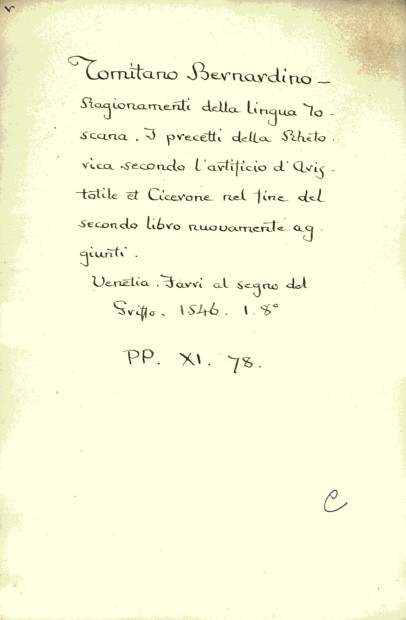 v
Tomitano Bernardino -
Ragionamenti della lingua To-
scana. I precetti della Rheto-
rica secondo l'artificio d'Aris-
totile et Cicerone nel fine del
secondo libro nuovamente ag-
giunti.
Venetia. Farri al segno del
Griffo. 1546. 1. 8°
PP. XI. 78.
C